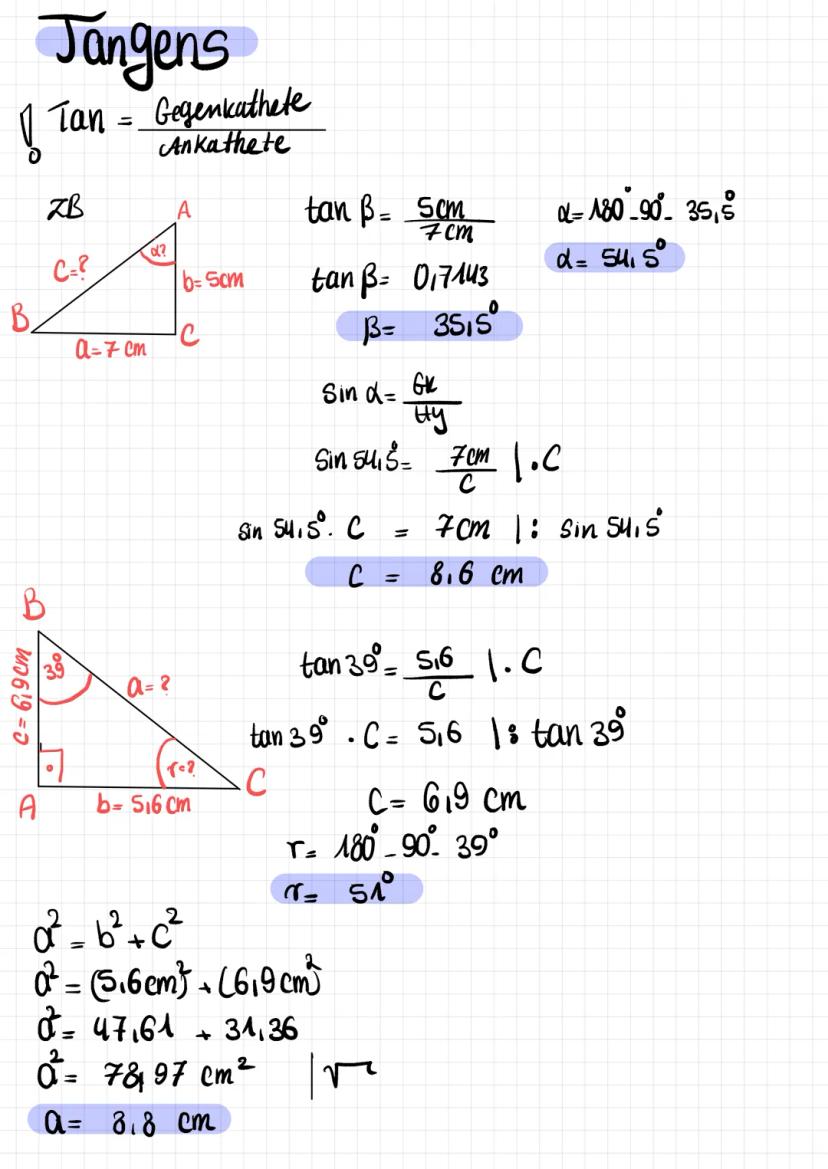 Tangens
! Tan = Gegenkathete / Ankathete
ZB
A
α?
C=?
b=5cm
B
C
a=7 cm
tan β= 5cm / 7cm
tan β= 0,7143
β= 35,5°
α=180°-90°- 35,5°
α= 54,5°
sin α= GK / Hy
sin 54,5°= 7cm / C |·C
sin 54,5°· C = 7cm |: sin 54,5°
C = 8,6 cm
B
39°
c=6,9cm
a=?
γ=?
A
b=5,6cm
C
tan 39°= 5,6 / C |· C
tan 39° · C= 5,6 |: tan 39°
C= 6,9 cm
γ= 180°-90°- 39°
γ= 51°
a²=b²+c²
a²=(5,6cm)²+(6,9cm)²
a²= 47,61 + 31,36
a²= 78,97 cm² |√
a= 8,8 cm